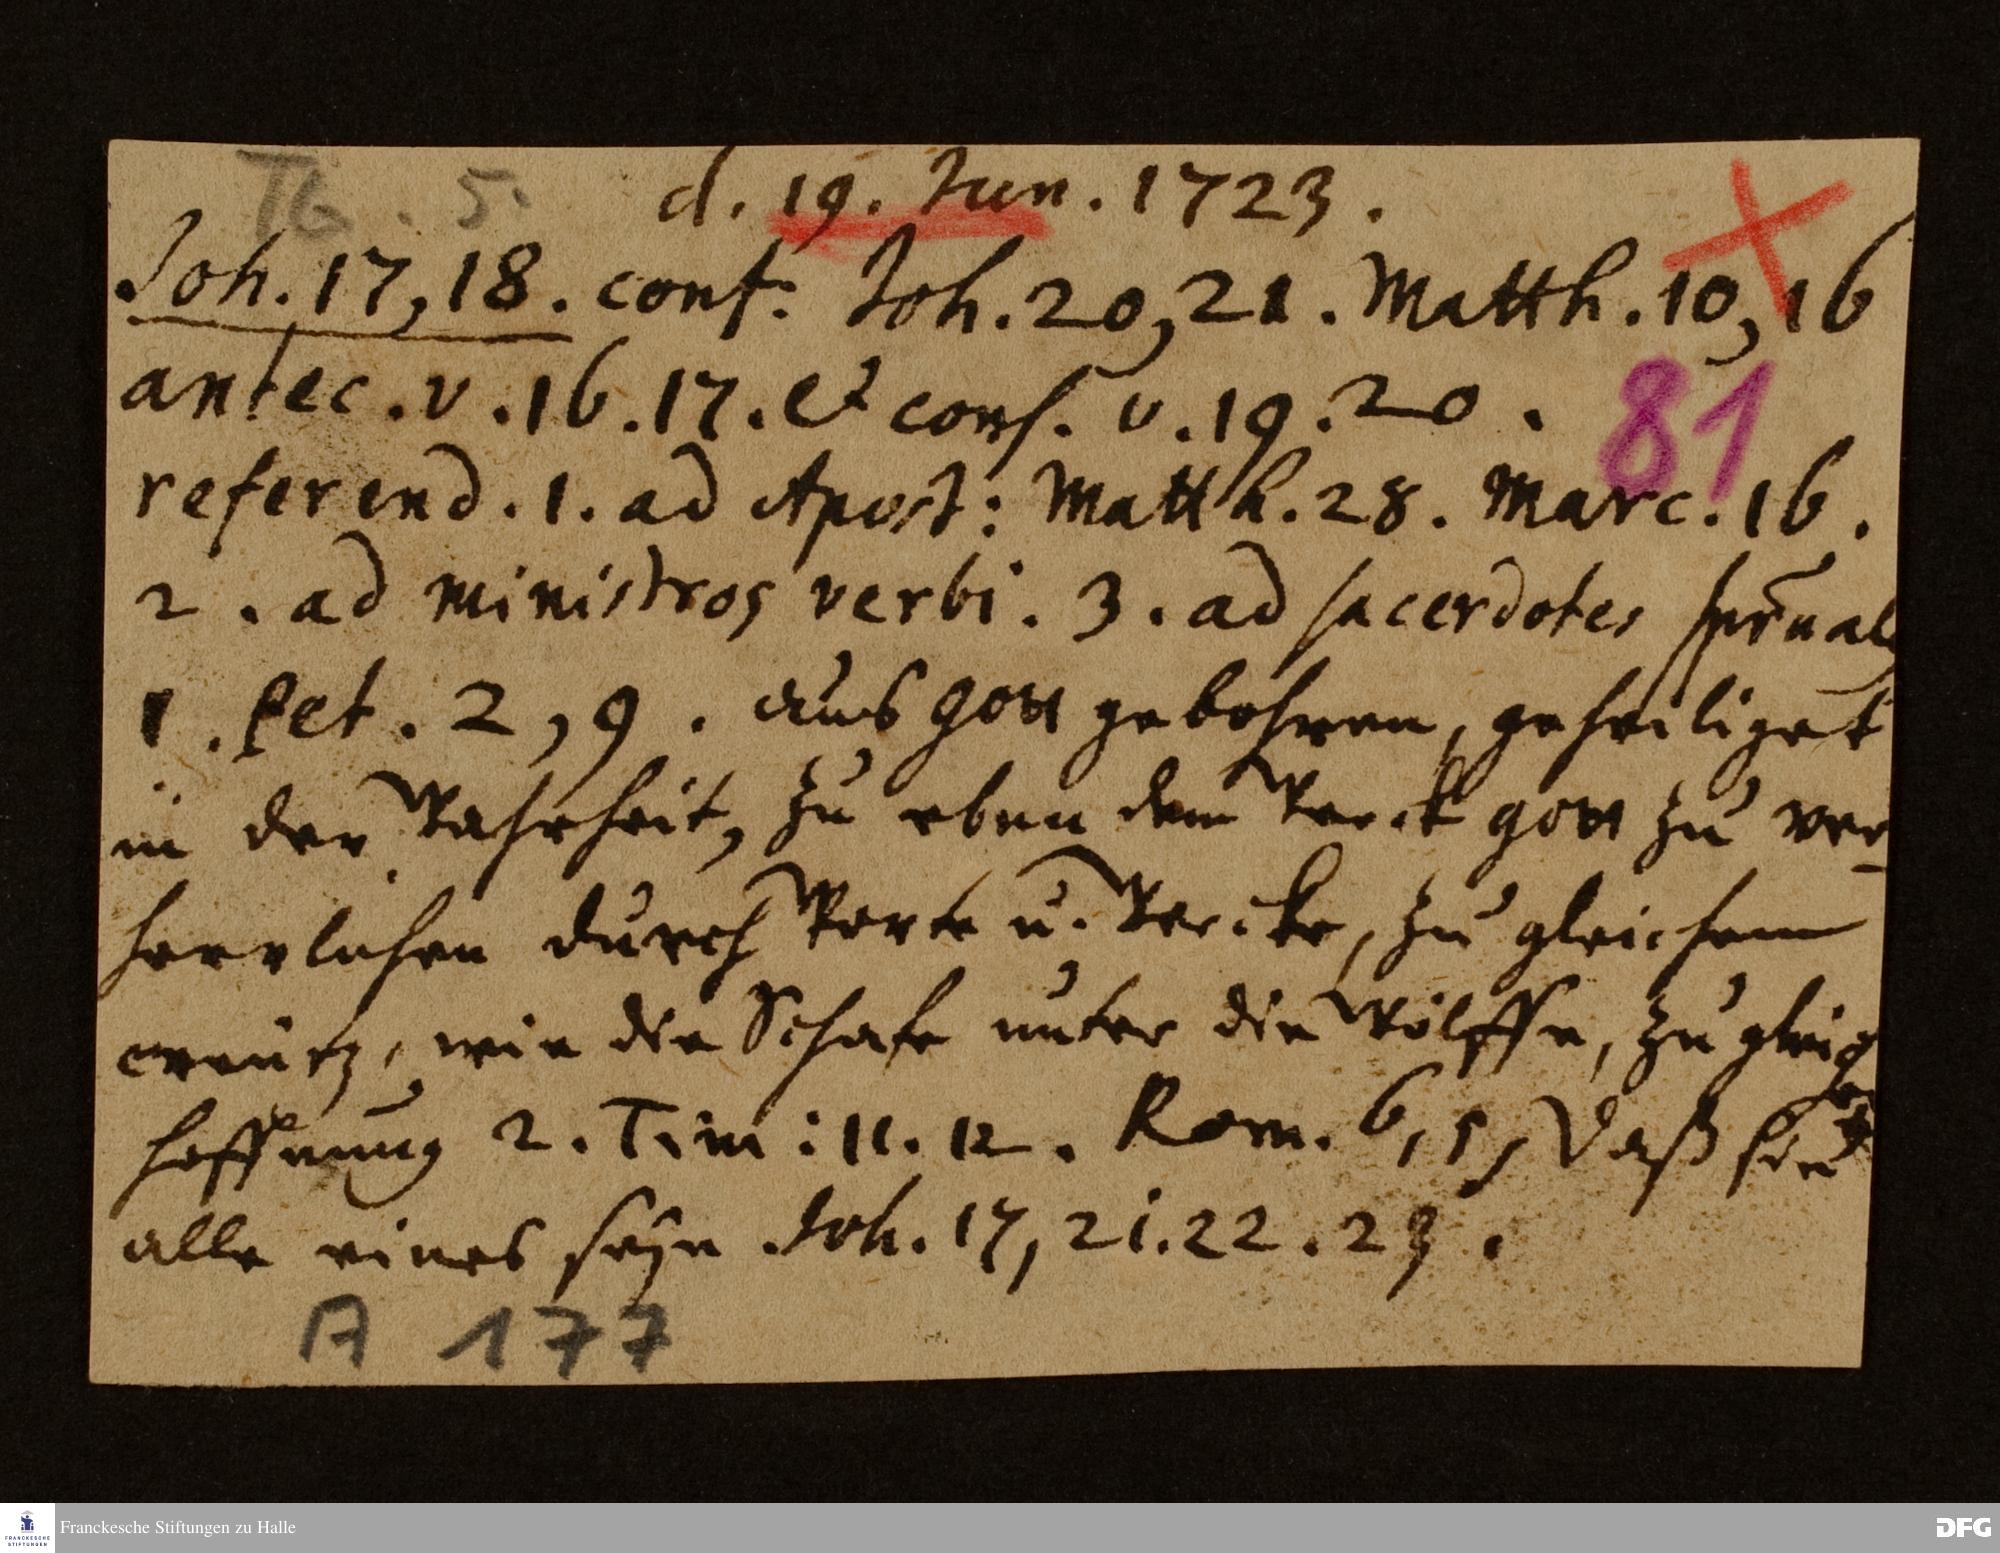 TG. 5. d. 19. Jun. 1723.
Joh. 17, 18. conf: Joh. 20, 21. Matth. 10, 16
antec. v. 16. 17. et conf. v. 19. 20.
81
referend. 1. ad Apost: Matth. 28. Marc. 16.
2. ad ministros verbi. 3. ad sacerdotes
1. Pet. 2, 9. aus Gott gebohren, geheiliget
in der Wahrheit, zu eben dem Werck Gott zu ver-
herrlichen durch Worte u. Wercke, zu gleichem
creutz, wie die Schafe unter die Wölffe, zu gleicher
hoffnung 2. Tim: 11. 12. Rom. 6, 5, daß sie
alle eines seyn Joh. 17, 21. 22. 23.
A 177
Franckesche Stiftungen zu Halle
FRANCKESCHE
STIFTUNGEN
DFG